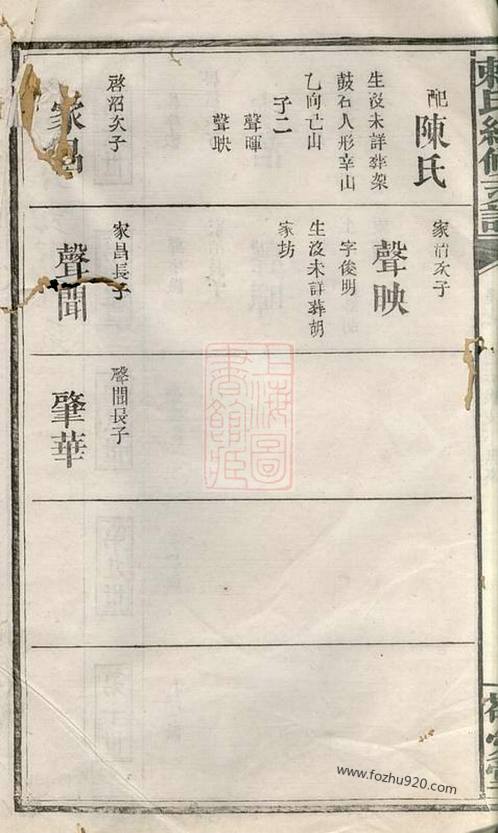 配陳氏
生沒未詳葬架
鼓石人形辛山
乙向亡山
子二
聲暉
聲映
啓沼次子
家昌
家治次子
聲映
字俊明
生沒未詳葬胡
家坊
家昌長子
聲聞
聲聞長子
肇華
上海圖
書館藏
www.fozhu920.com